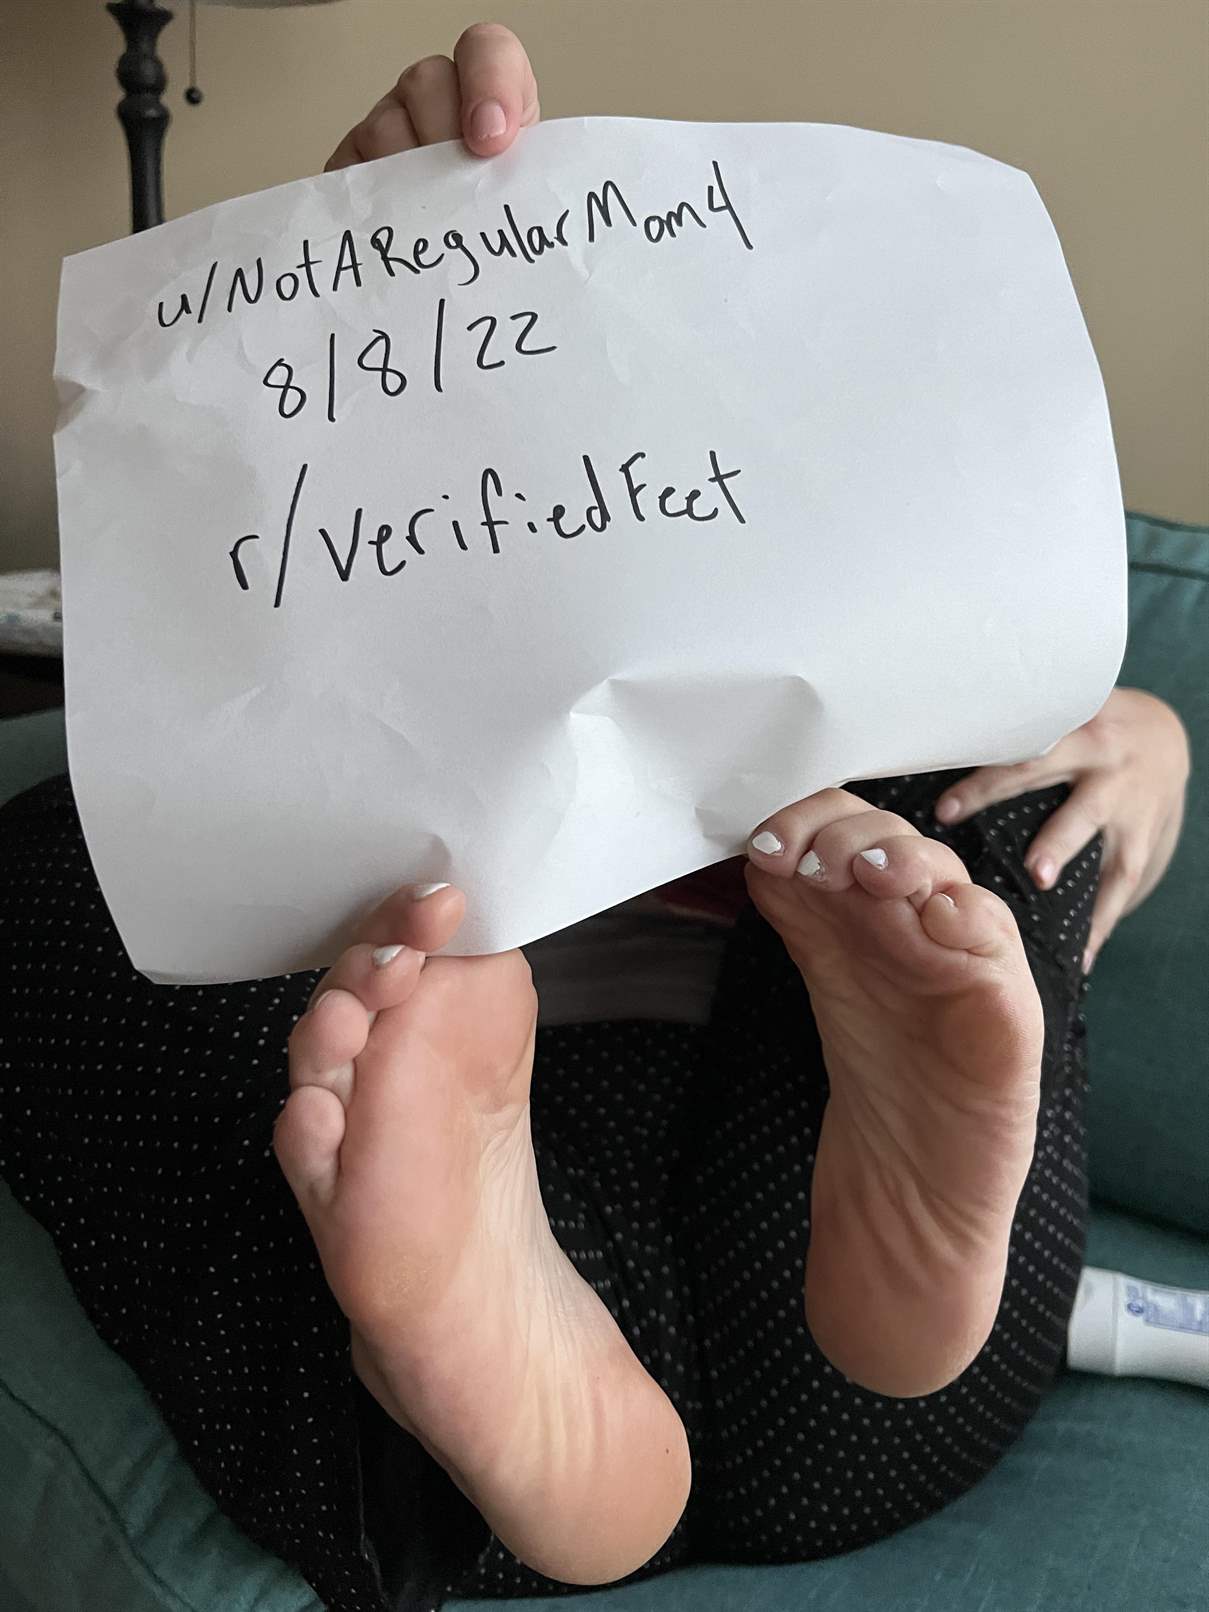 u/NotARegularMom4
8/8/22
r/verifiedFeet